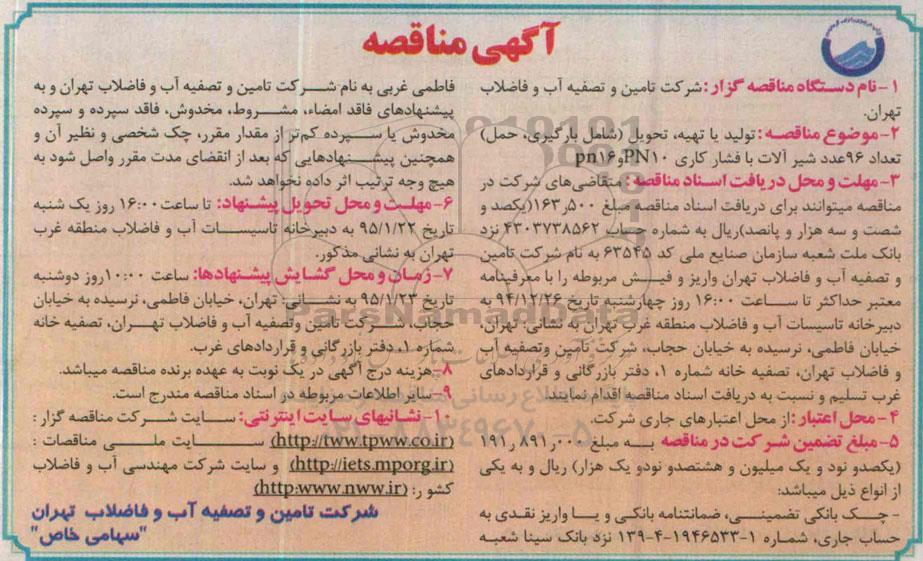 آگهی مناقصه
۱- نام دستگاه مناقصه گزار: شرکت تامین و تصفیه آب و فاضلاب
تهران.
۲- موضوع مناقصه: تولید یا تهیه، تحویل (شامل بارگیری، حمل)
تعداد ۹۶عدد شیر آلات با فشار کاری PN۱۰ وpn۱۶
۳- مهلت و محل دریافت اسناد مناقصه: متقاضی‌های شرکت در
مناقصه میتوانند برای دریافت اسناد مناقصه مبلغ ۱۶۳٫۵۰۰(یکصد و
شصت و سه هزار و پانصد)ریال به شماره حساب ۴۳۰۳۷۳۸۵۶۲ نزد
بانک ملت شعبه سازمان صنایع ملی کد ۶۳۵۴۵ به نام شرکت تامین
و تصفیه آب و فاضلاب تهران واریز و فیش مربوطه را با معرفینامه
معتبر حداکثر تا ساعت ۱۶:۰۰ روز چهارشنبه تاریخ ۹۴/۱۲/۲۶ به
دبیرخانه تاسیسات آب و فاضلاب منطقه غرب تهران به نشانی: تهران،
خیابان فاطمی، نرسیده به خیابان حجاب، شرکت تامین وتصفیه آب
و فاضلاب تهران، تصفیه خانه شماره ۱، دفتر بازرگانی و قراردادهای
غرب تسلیم و نسبت به دریافت اسناد مناقصه اقدام نمایند.
۴- محل اعتبار: از محل اعتبارهای جاری شرکت.
۵- مبلغ تضمین شرکت در مناقصه به مبلغ ۱۹۱٫۸۹۱٫۰۰۰
(یکصدو نود و یک میلیون و هشتصدو نودو یک هزار) ریال و به یکی
از انواع ذیل میباشد:
- چک بانکی تضمینی، ضمانتنامه بانکی و یا واریز نقدی به
حساب جاری، شماره ۱-۱۹۴۶۵۳۳-۴-۱۳۹ نزد بانک سینا شعبه
فاطمی غربی به نام شرکت تامین و تصفیه آب و فاضلاب تهران و به
پیشنهادهای فاقد امضاء، مشروط، مخدوش، فاقد سپرده و سپرده
مخدوش یا سپرده کم‌تر از مقدار مقرر، چک شخصی و نظیر آن و
همچنین پیشنهادهایی که بعد از انقضای مدت مقرر واصل شود به
هیچ وجه ترتیب اثر داده نخواهد شد.
۶- مهلت و محل تحویل پیشنهاد: تا ساعت ۱۶:۰۰ روز یک شنبه
تاریخ ۹۵/۱/۲۲ به دبیرخانه تاسیسات آب و فاضلاب منطقه غرب
تهران به نشانی مذکور.
۷- زمان و محل گشایش پیشنهادها: ساعت ۱۰:۰۰روز دوشنبه
تاریخ ۹۵/۱/۲۳ به نشانی: تهران، خیابان فاطمی، نرسیده به خیابان
حجاب، شرکت تامین وتصفیه آب و فاضلاب تهران، تصفیه خانه
شماره ۱، دفتر بازرگانی و قراردادهای غرب.
۸- هزینه درج آگهی در یک نوبت به عهده برنده مناقصه میباشد.
۹- سایر اطلاعات مربوطه در اسناد مناقصه مندرج است.
۱۰- نشانیهای سایت اینترنتی: سایت شرکت مناقصه گزار:
(http://tww.tpww.co.ir) سایت ملی مناقصات:
(http://iets.mporg.ir) و سایت شرکت مهندسی آب و فاضلاب
کشور: (http:www.nww.ir)
شرکت تامین و تصفیه آب و فاضلاب تهران
"سهامی خاص"
ParsNamadData